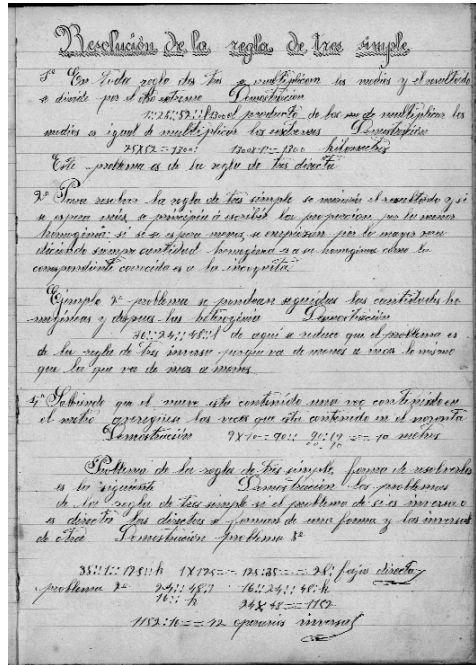 Resolución de la regla de tres simple
1ª En toda regla de tres se multiplican los medios y el resultado
se divide por el otro extremo Demostración
el producto de los de multiplicar los
medios es igual de multiplicar los extremos Demostración
25X52=1300 1300X1=1300 kilometros
Este problema es de la regla de tres directa
2ª Para resolver la regla de tres simple se mirará el resultado y si
se espera más, se principia á escribir la proporción por la menor
homogénea; si se espera menos, se empezará por la mayor
diciendo siempre cantidad homogénea es a su homogénea como la
correspondiente conocida es a la incognita.
Ejemplo 2º problema se pondran seguidas las cantidades ho
mogéneas y despues las Demostración
16::24::48: de aquí se deduce que el problema es
de la regla de tres inversa porque va de menos a mas lo mismo
que la que va de mas a menos.
4ª Sabiendo que el nueve esta contenido una vez contenido en
el metro las veces que esta contenido en el noventa
Demostración 9X10=90:: 90:9 == 10 metros
Problema de la regla de tres simple, forma de resolverlos
es la siguiente Demostración los problemas
de la regla de tres simple si el problema de si es inversa o
es directa las directas se forman de una forma y las inversas
de otra. Demostración problema 3º
35::1::125::h 1X125== 125:35== fajas directa
problema 2º 24::48:: 16::24::48:h
16:: h 24X48==1152
1152:16== 72 operarios inversa